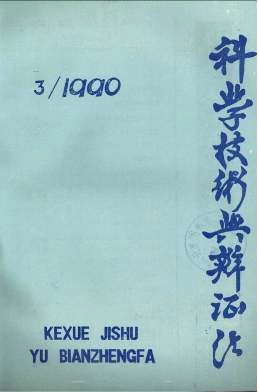 3/1990
科学技術與辯证法
KEXUE JISHU
YU BIANZHENGFA